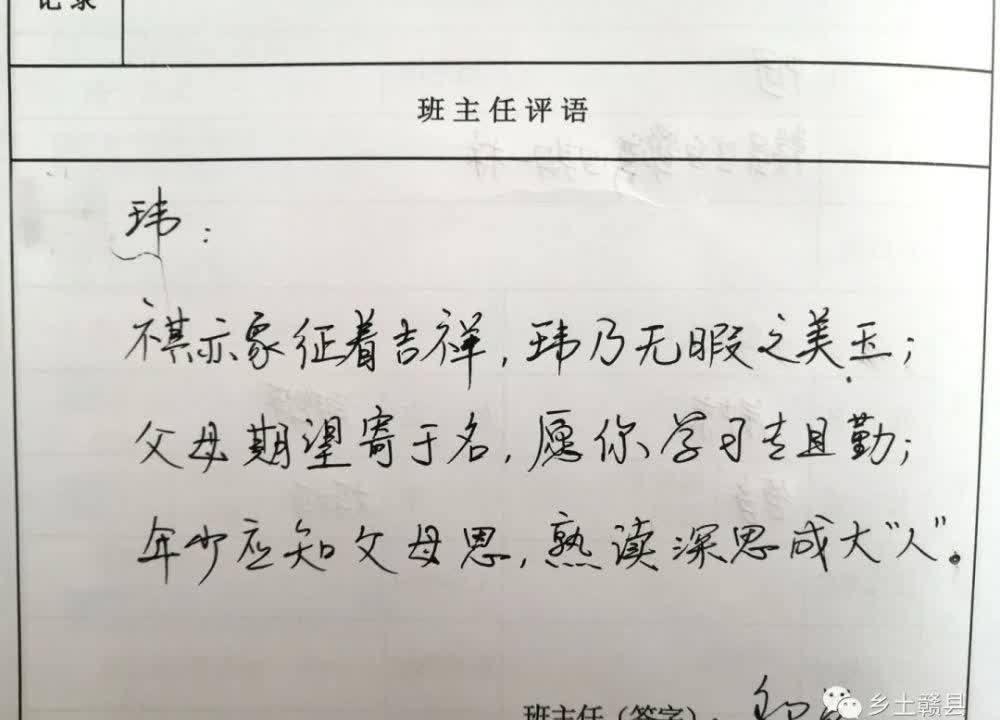 记录
班主任评语
玮：
祺亦象征着吉祥，玮乃无暇之美玉；
父母期望寄于名，愿你学习专且勤；
年少应知父母恩，熟读深思成大“人”。
班主任（签字）：
乡土赣县